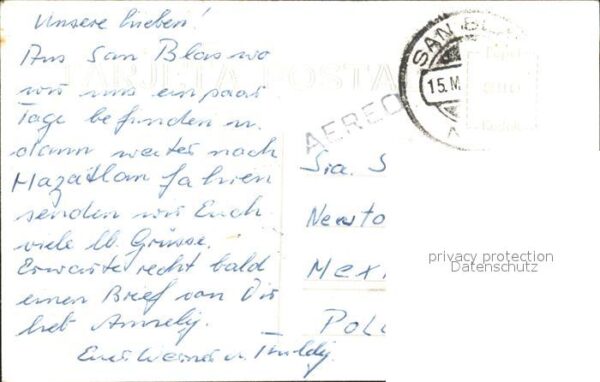 Unsere Lieben!
Aus San Blas wo
wir uns ein paar
Tage befinden u.
dann weiter nach
Mazatlan fahren
senden wir Euch
viele lb. Grüsse.
Erwarte recht bald
einen Brief von Dir
lieb
Euer Werner u.
TARJETA POSTA
AEREO
SAN B
15. M
Sia. S
Newto
Mexi
Pol
privacy protection
Datenschutz